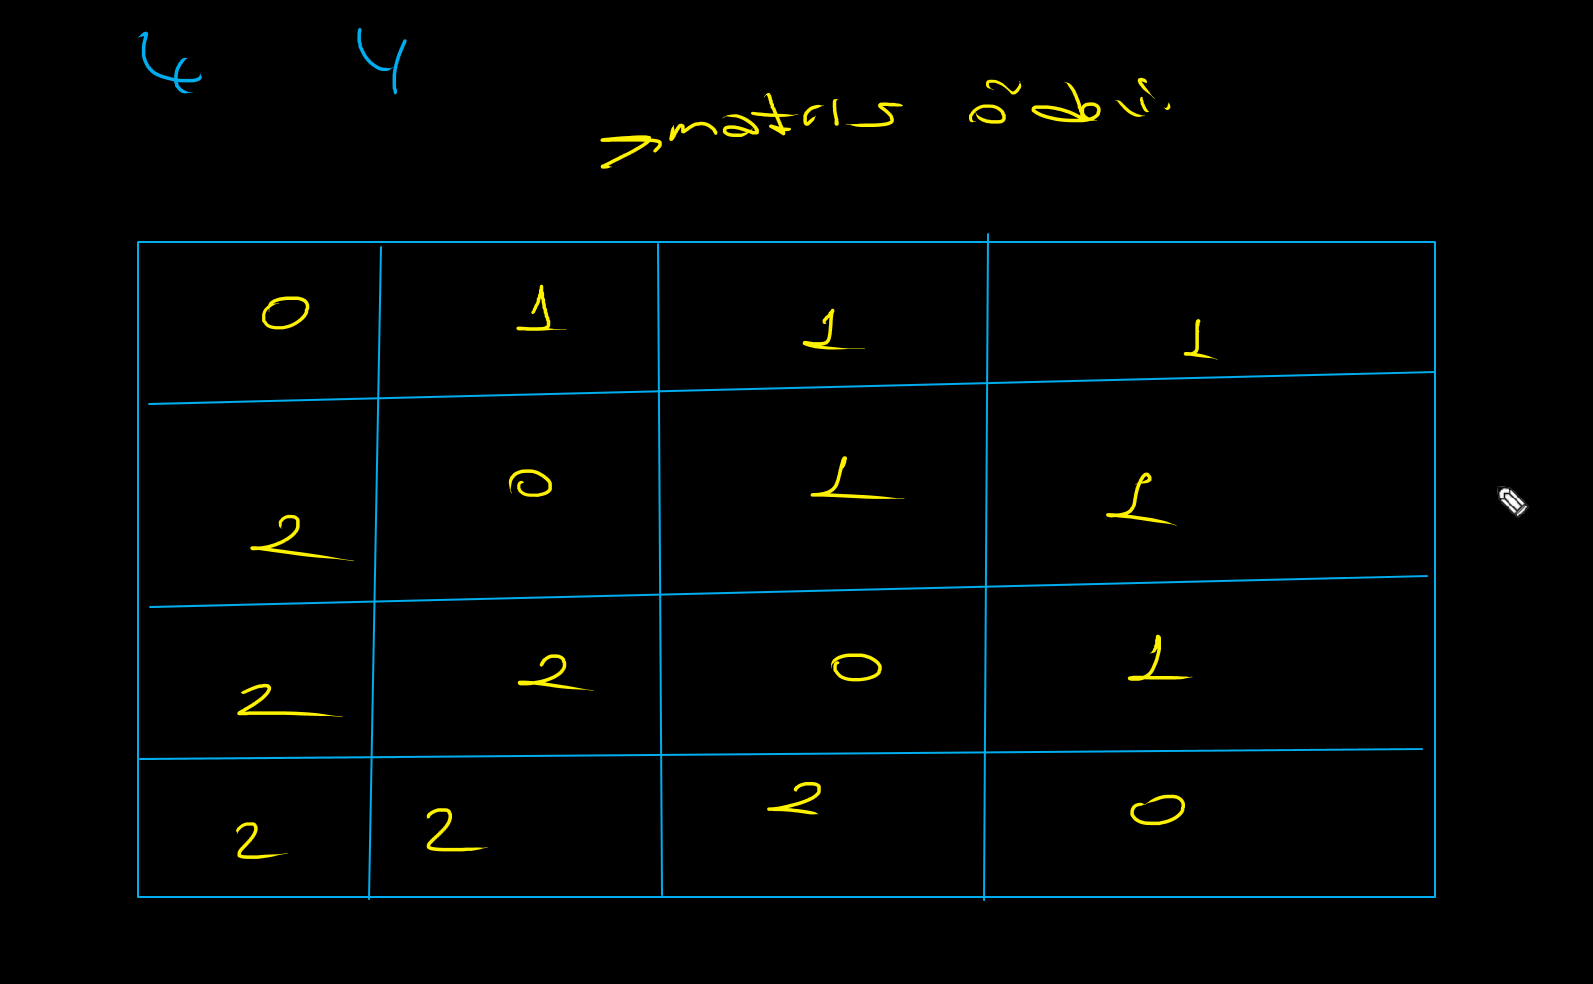 4 4
>matris ödbü
0 1 1 1
2 0 1 1
2 2 0 1
2 2 2 0